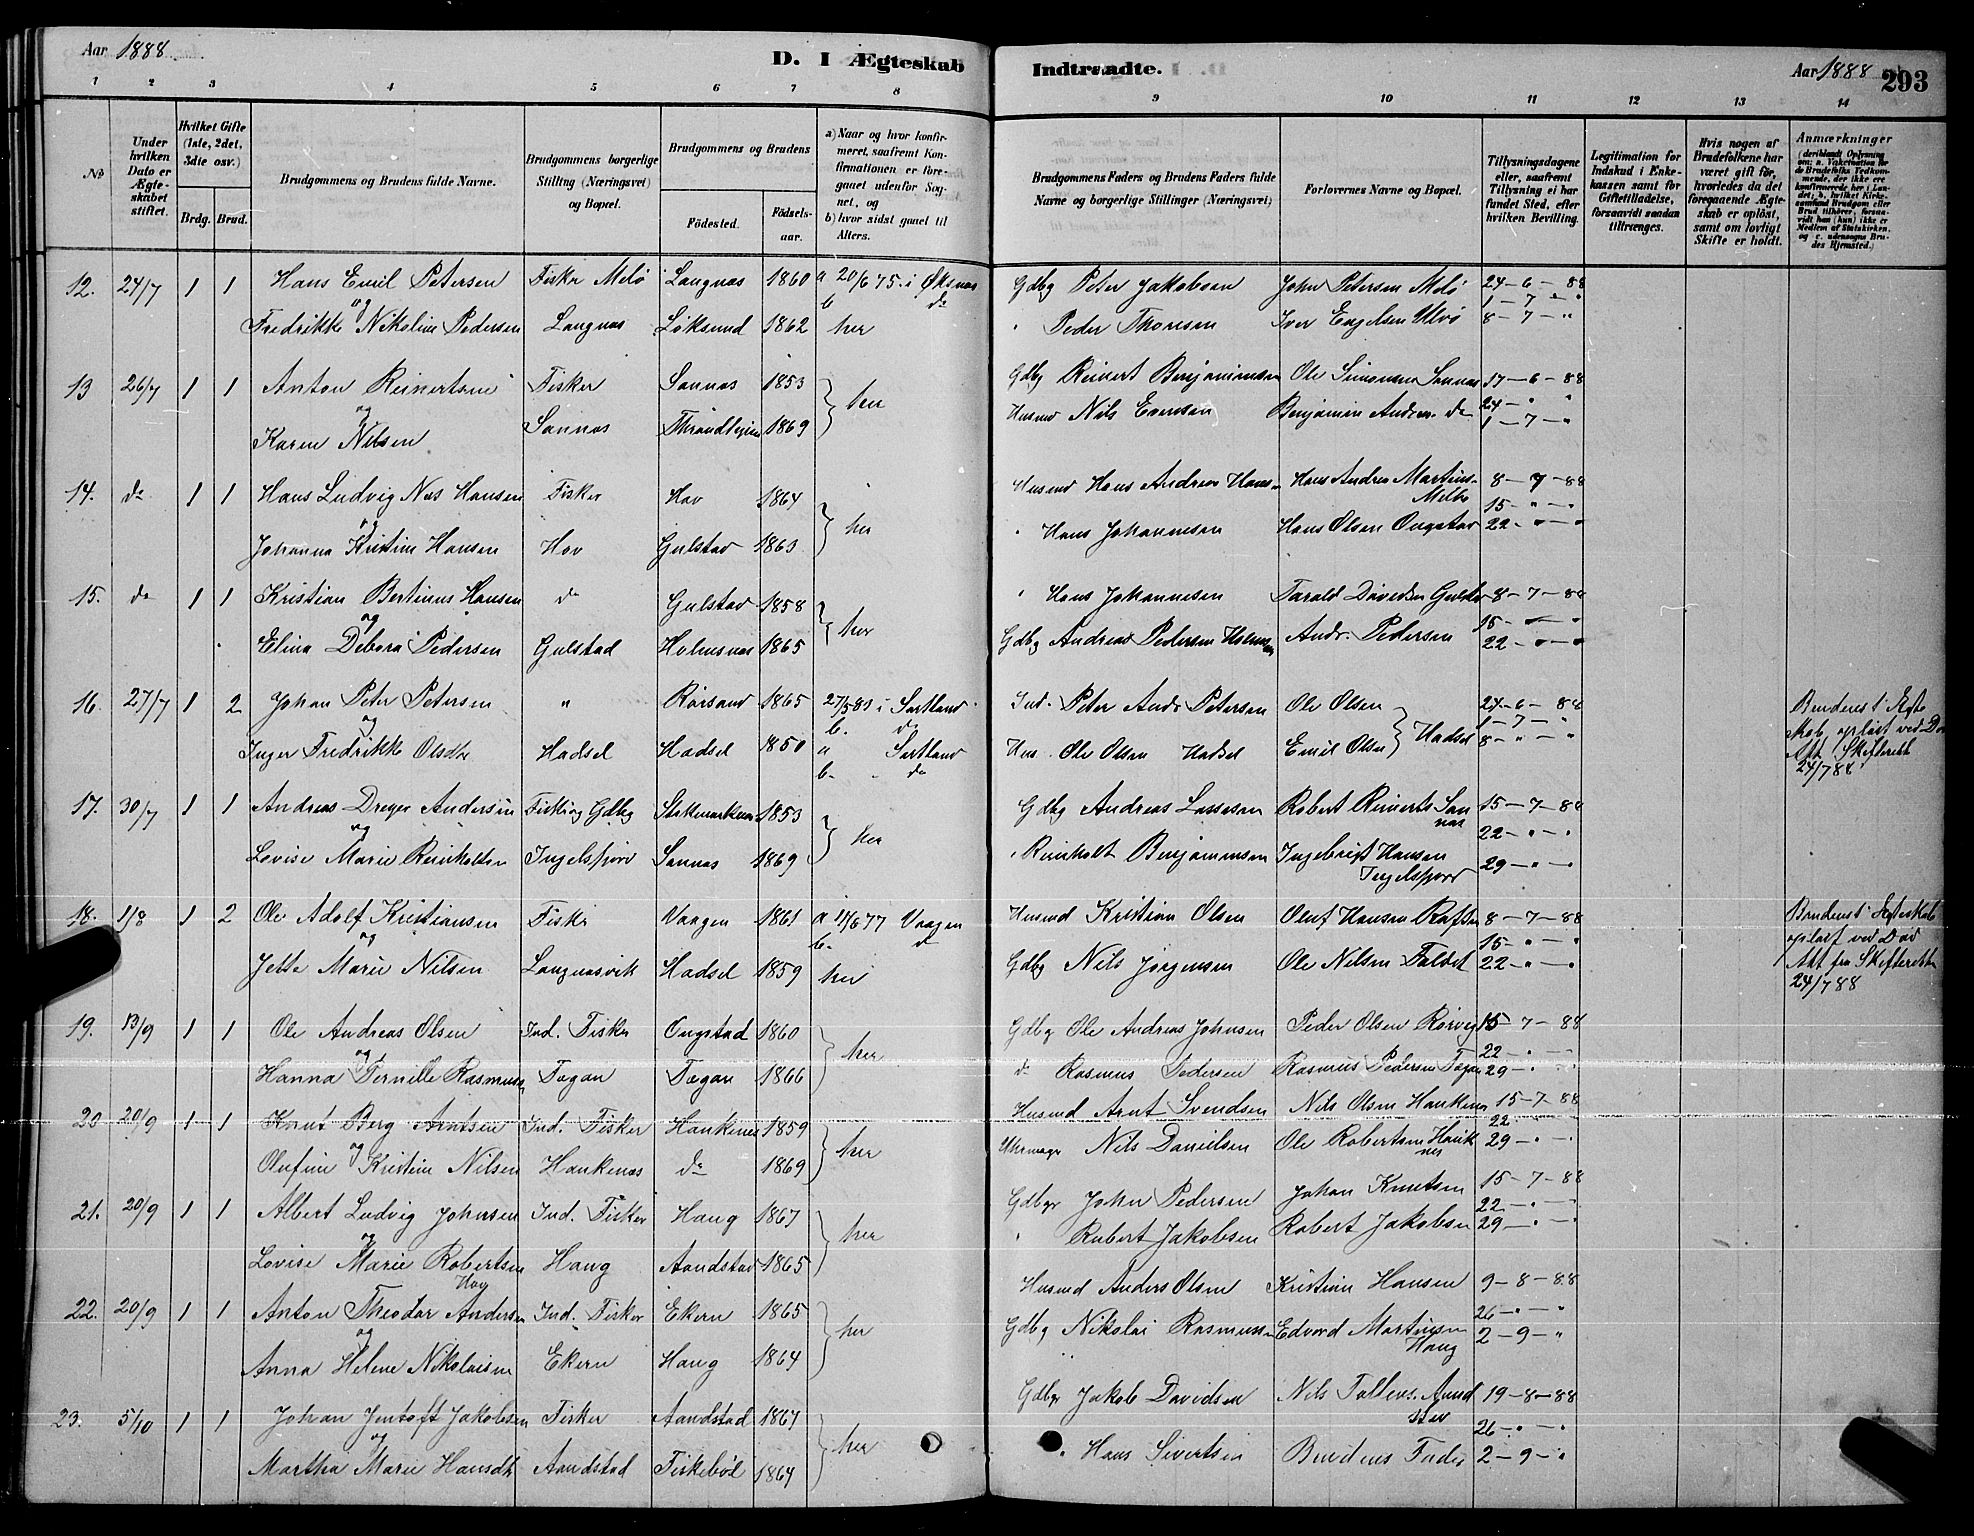 Aar 1888.
D. I Ægteskab
Indtraadte.
Aar 1888
293
1 2 3 4 5 6 7 8 9 10 11 12 13 14
No
Under hvilken Dato er Ægteskabet stiftet.
Hvilket Gifte (1ste, 2det, 3die osv.)
Brdg. Brud.
Brudgommens og Brudens fulde Navne.
Brudgommens borgerlige Stilling (Næringsvei) og Bopæl.
Brudgommens og Brudens
Fødested. Fødselsaar.
a) Naar og hvor konfirmeret, saafremt Konfirmationen er foregaaet udenfor Sognet, og
b) hvor sidst gaaet til Alters.
Brudgommens Faders og Brudens Faders fulde Navne og borgerlige Stillinger (Næringsvei)
Forlovernes Navne og Bopæl.
Tillysningsdagene eller, saafremt Tillysning ei har fundet Sted, efter hvilken Bevilling.
Legitimation for Indskud i Enkekassen samt for Giftetilladelse, forsaavidt saadan tiltrænges.
Hvis nogen af Brudefolkene har været gift før, hvorledes da det foregaaende Ægteskab er opløst, samt om lovligt Skifte er holdt.
Anmærkninger
(deriblandt Oplysning om: a. Vakcination for de Brudefolks Vedkommende, der ikke ere konfirmerede her i Landet; b. hvilket Kirkesamfund Brudgom eller Brud tilhører, forsaavidt han (hun) ikke er Medlem af Statskirken, og c. udensogns Brudes Hjemsted.)
12. 24/7 1 1 Hans Emil Petersen Fisker Melø Langnæs 1860 a 20/6 75. i Øksnæs Gdbg Peter Jakobsen John Petersen Melø 24-6-88
og b do 1-7-"
Fredrikke Nikoline Pedersen Langnæs Løksund 1862 her " Peder Thoresen Iver Engelsen Ulvø 8-7-"
13 26/7 1 1 Anton Reinertsen Fisker Sannæs 1853 her Gdbg Reinert Benjaminsen Ole Simonsen Sannæs 17-6-88
og 24-"-"
Karen Nilsen Sannæs Throndhjem 1869 Husmd Nils Evensen Benjamin Andrea. do 1-7-"
14. do 1 1 Hans Ludvig Næs Hansen Fisker Hov 1864 her Husmd Hans Andreas Hans. Hans Andrea Martins. Melbo 8-7-88
og 15-"-"
Johanna Kristine Hansen Hov Gulstad 1863 " Hans Johannesen Hans Olsen Ongstad 22-"-"
15. do 1 1 Kristian Bertinus Hansen do Gulstad 1858 her " Hans Johannesen Tarald Davidsen Gulstad 8-7-88
og 15-"-"
Elina Debora Pedersen Gulstad Holmsnæs 1865 Gdbg Andreas Pedersen Andr. Pedersen 22-"-"
16. 27/7 1 2 Johan Peter Petersen " Rørsand 1865 27/5 83 i Sortland Ind. Peter Andr Petersen Ole Olsen 24-6-88 Brudens 1' Ægte
og b. do Hadsel 1-7-" skab opløst ved Død
Inger Fredrikke Olsdtr Hadsel Hadsel 1850 a Sortland Hus. Ole Olsen Hadsel Emil Olsen 8-"-" Att. Skifteret
b- do 24/7 88
17. 30/7 1 1 Andreas Dreyer Andersen Fisker og Gdbg Stokmarknæs 1853 her Gdbg Andreas Lassesen Robert Reinerts Sannæs 15-7-88
og 22-"-"
Lovise Marie Reinholdtsn Ingelsfjord Sannæs 1869 " Reinholt Benjaminsen Ingebrigt Hansen Ingelsfjord 29-"-"
18. 1/8 1 2 Ole Adolf Kristiansen Fisker Vaagen 1861 a 17/6 77 Vaagen Husmd Kristian Olsen Oluf Hansen 8-7-88 Brudens 1' Ægteskab
og b- do 15-"-" opløst ved Død
Jette Marie Nilsen Langnæsvik Hadsel 1859 her Gdbg Nils Jørgensen Ole Nilsen Faldet 22-"-" Att fra Skifteret
24/7 88
19. 13/9 1 1 Ole Andreas Olsen Ind. Fisker Ongstad 1860 her Gdbg Ole Andreas Johnsen Peder Olsen Rørvig 15-7-88
og 22-"-"
Hanna Pernille Rasmuss Fagan Fagan 1866 do Rasmus Pedersen Rasmus Pedersen Fagan 29-"-"
20 20/9 1 1 Knut Berg Arntsen Ind. Fisker Haukenes 1859 her Husmd Arnt Svendsen Nils Olsen Haukenes 15-7-88
og 22-
Olufine Kristine Nilsen Haukenæs do 1869 Uhrmager Nils Danielsen Ole Robertsen Haukenes 29-"-"
21. 20/9 1 1 Albert Ludvig Johnsen Ind. Fisker Haug 1867 her Gdbgr John Pedersen Johan Knutsen 15-7-88
og 22-"-"
Lovise Marie Robertsen Haug Aandstad 1865 " Robert Jakobsen Robert Jakobsen 29-"-"
22. 20/9 1 1 Anton Theodor Andersen Ind. Fisker Ekern 1865 her Husmd Anders Olsen Kristian Hansen 9-8-88
og 26-"-"
Anna Helene Nikolaisen Ekern Haug 1864 Gdbg Nikolai Rasmussen Edvard Martinsen Haug 2-9-"
23. 5/10 1 1 Johan Jentoft Jakobsen Fisker Aandstad 1867 her Gdbgr Jakob Davidsen Nils Tollevs. Aandstad 19-8-88
og 26-"-"
Martha Marie Hansdtr Aandstad Fiskebøl 1864 " Hans Sivertsen Brudens Fader 2-9-"